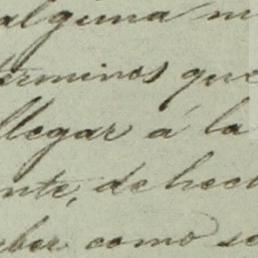 alguna m
erminos que
llegar á la
nte, de hech
aber como se